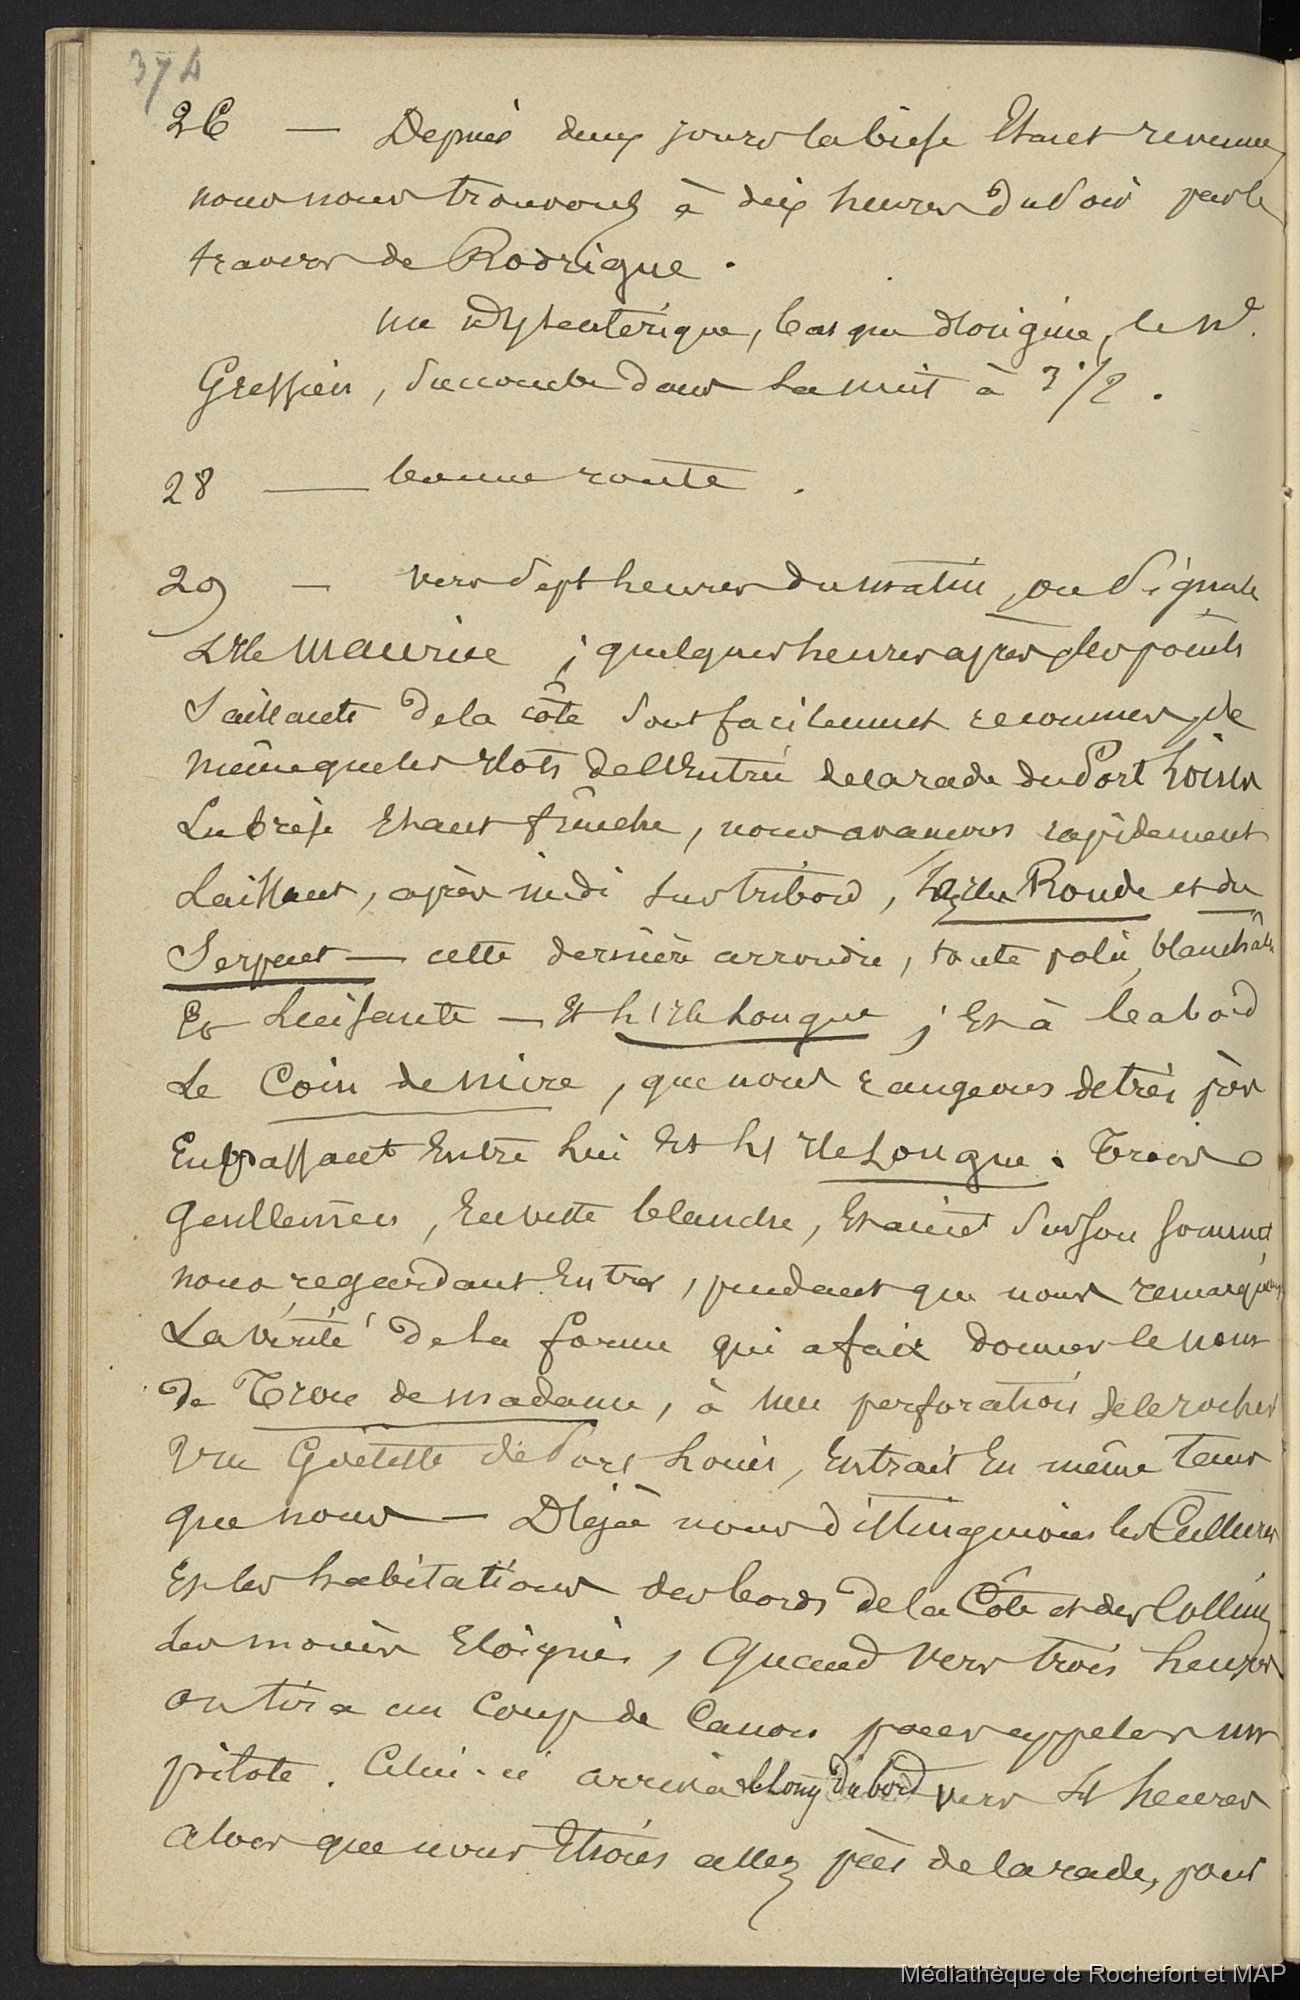 374
26 — Depuis deux jours la brise étant revenue,
nous nous trouvons à dix heures du soir par le
travers de Rodrigue.
un dysentérique, basque d'origine, le Nd.
, succombe dans la nuit à 3 1/2.
28 — bonne route.
29 — vers sept heures du matin, on signale
L'Ile Maurice ; quelques heures après les points
saillants de la côte sont facilement reconnus, de
même que les Ilots de l'Entrée de la rade du Port Louis
La brise étant fraîche, nous avançons rapidement
Laissant, après midi sur tribord, les iles Ronde et du
Serpent — cette dernière arrondie, toute polie, blanchâtre
Et luisante — Et l'Ile Longue ; Et à babord
Le Coin de mire, que nous rangeons de très près
En passant Entre lui Et l'Ile Longue. Trois
Gentlemen, En veste blanche, Etaient sur son sommet
nous regardant Entrer, pendant que nous remarquions
La vérité de la forme qui a fait donner le nom
de Trou de madame, à une perforation de le rocher
Une Goëlette de Port Louis, Entrait En même tems
que nous — Déjà nous distinguions les Cultures
Et les habitations des bords de la Côte et des Collines
Les moins Eloignés, Quand vers trois heures
on tira un Coup de Canon pour appeler un
pilote. Celui-ci arriva le long du bord vers 4 heures
alors que nous Etions assez près de la rade, pour
Médiathèque de Rochefort et MAP